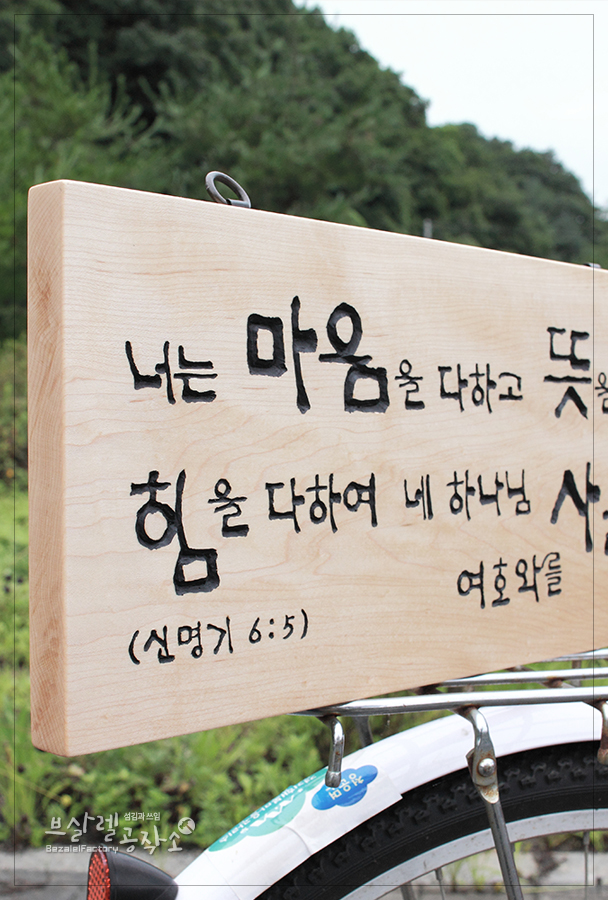 너는 마음을 다하고 뜻을
힘을 다하여 네 하나님 사
여호와를
(신명기 6:5)
브살렐공작소
섬김과 쓰임
BezalelFactory